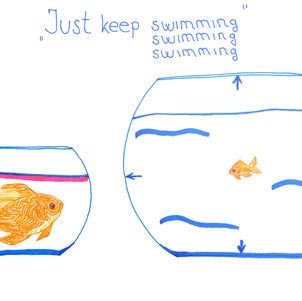 "Just keep swimming"
swimming
swimming